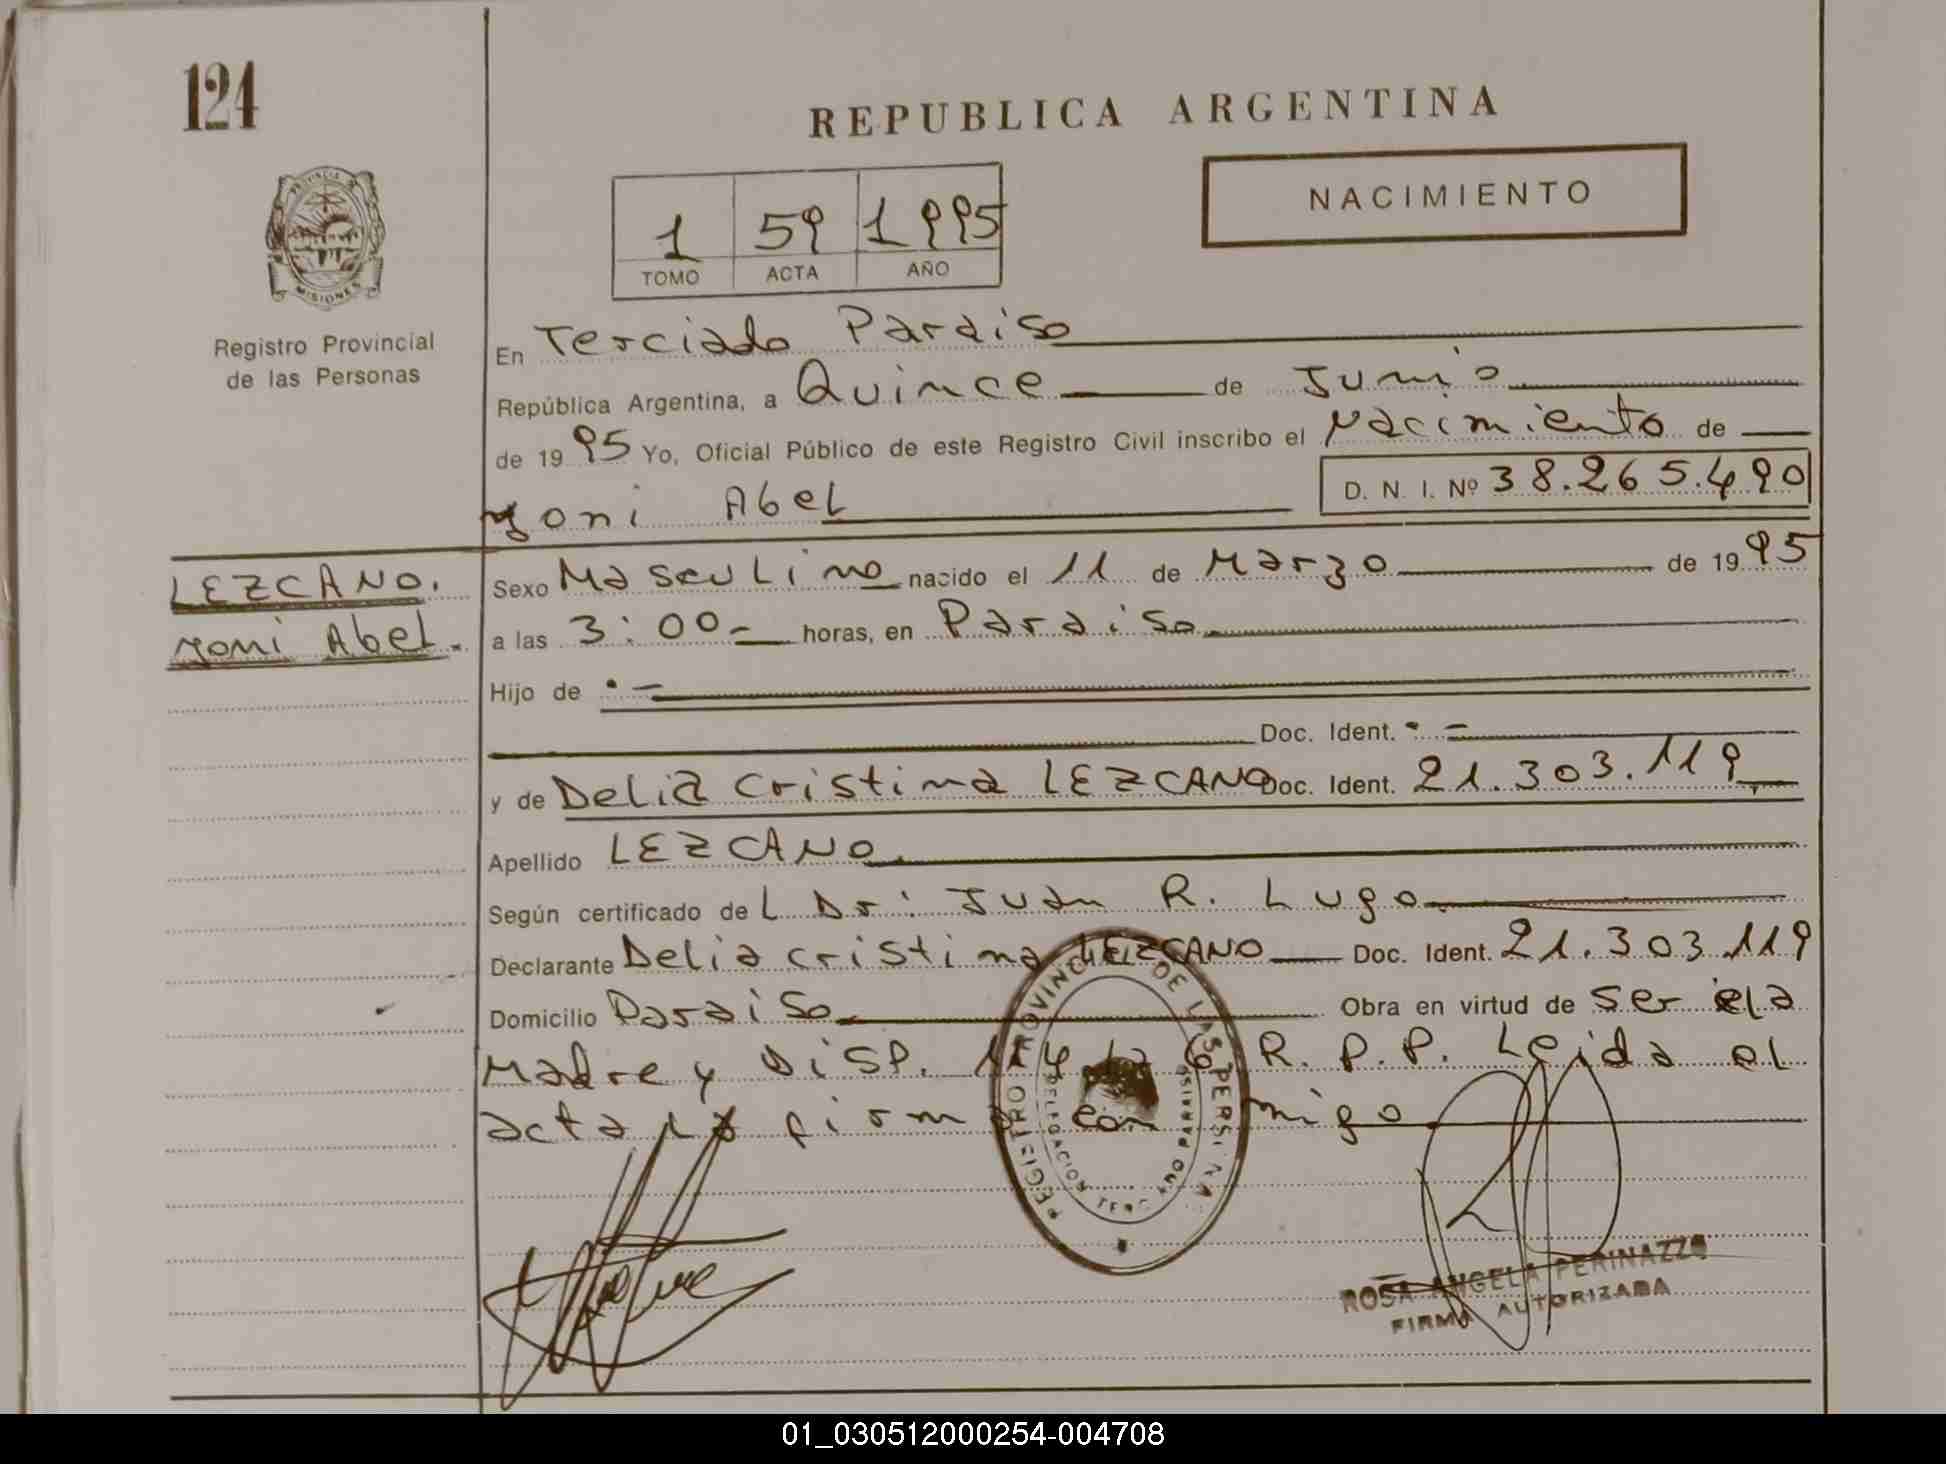 124
REPUBLICA ARGENTINA
NACIMIENTO
PROVINCIA DE
MISIONES
Registro Provincial
de las Personas
1 59 1995
TOMO ACTA AÑO
En Terciado Paraiso
República Argentina, a Quince de Junio
de 1995 Yo, Oficial Público de este Registro Civil inscribo el Nacimiento de
Yoni Abel D. N. I. Nº 38.265.490
LEZCANO.
Yoni Abel.
Sexo Masculino nacido el 11 de Marzo de 1995
a las 3:00- horas, en Paraiso
Hijo de . -
Doc. Ident. . -
y de Delia Cristina LEZCANO Doc. Ident. 21.303.119
Apellido LEZCANO
Según certificado del Dr: Juan R. Lugo
Declarante Delia Cristina LEZCANO Doc. Ident. 21.303.119
Domicilio Paraiso Obra en virtud de ser ela
Madre y DiSP. R. P. P. Leida el
acta la firma conmigo
REGISTRO PROVINCIAL DE LAS PERSONAS
DELEGACION PARAISO
ROSA ANGELA PERINAZZO
FIRMA AUTORIZADA
01_030512000254-004708